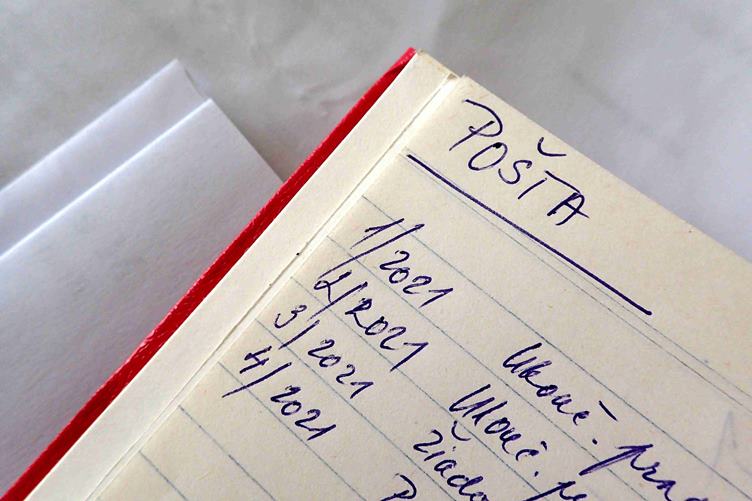 POŠTA
1/2021 Ukonč. prac
2/2021 Ukonč. pr
3/2021 Žiado
4/2021 P